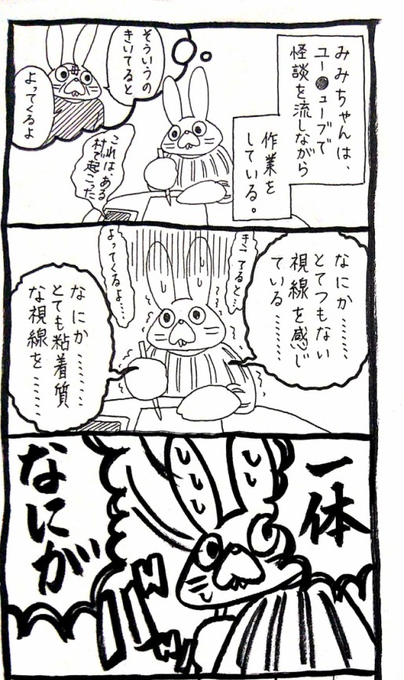 みみちゃんは、
ユー●ューブで
怪談を流しながら
作業を
している。
そういうの
きいてると
よってくるよ
これは、ある
村で起こった
なにか………
とてつもない
視線を感じ
ている………
きいてると…
よってくるよ…
なにか………
とても粘着質
な視線を………
一体
なにが